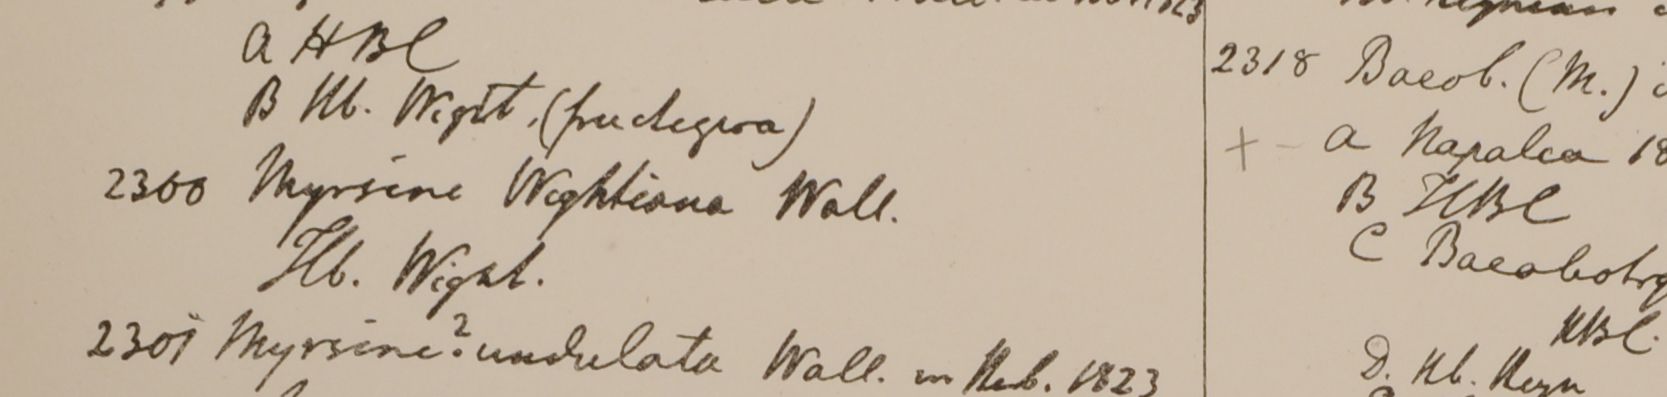 A HBC
B Hb. Wight. (fructigera)
2300 Myrsine Wightiana Wall.
Hb. Wight.
2301 Myrsine? undulata Wall. in Herb. 1823
2318 Baeob. (M.)
+ - a Napalea 18
B HBC
C Baeobotry
HBC.
D. Hb. Heyn